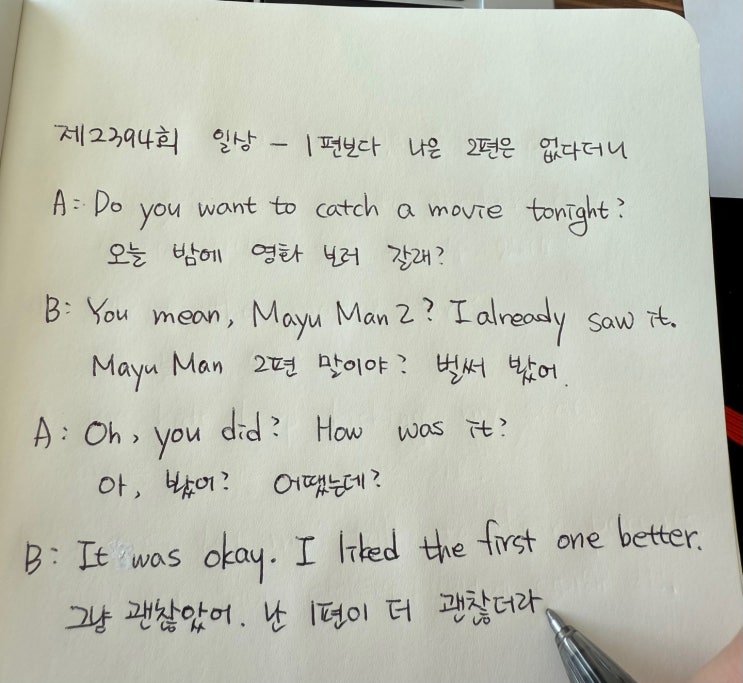 제2394회 일상 - 1편보다 나은 2편은 없다더니
A: Do you want to catch a movie tonight?
오늘 밤에 영화 보러 갈래?
B: You mean, Mayu Man 2? I already saw it.
Mayu Man 2편 말이야? 벌써 봤어.
A: Oh, you did? How was it?
아, 봤어? 어땠는데?
B: It was okay. I liked the first one better.
그냥 괜찮았어. 난 1편이 더 괜찮더라